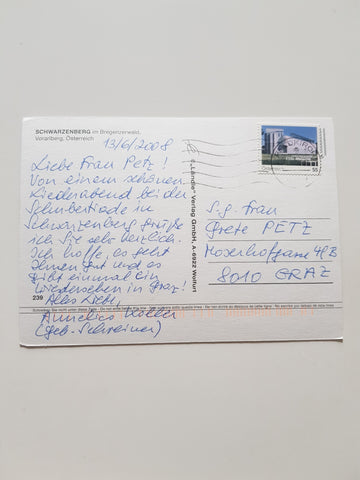 SCHWARZENBERG im Bregenzerwald,
Vorarlberg, Österreich
13/6/2008
Liebe Frau Petz!
Von einem schönen
Liederabend bei der
Schubertiade in
Schwarzenberg grüße
ich Sie sehr herzlich.
Ich hoffe, es geht
Ihnen gut und es
gibt einmal ein
Wiedersehen in Graz!
Alles Liebe,
Annelies
(geb. Schreiner)
239
© „Ländle" Verlag GmbH, A-6922 Wolfurt
55
S.g. Frau
Grete PETZ
Moserhofgasse
8010 GRAZ